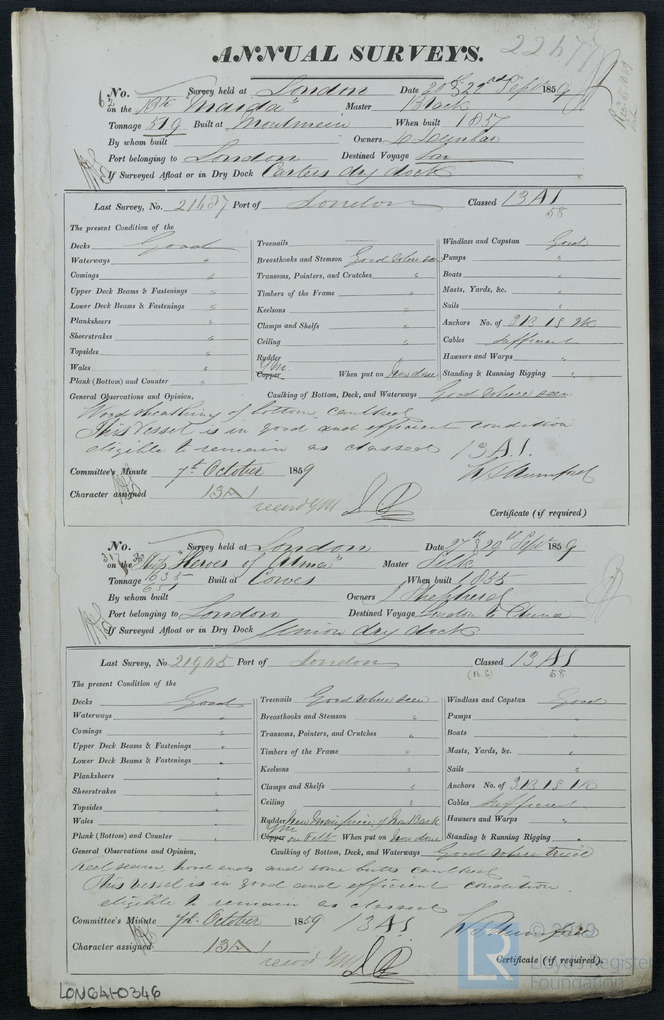 ANNUAL SURVEYS.
22477
No. 62 Survey held at London Date 20th & 22nd Septr 1859
on the Bk "Maida" Master Black
Tonnage 519 Built at Moulmein When built 1857
By whom built Owners
Port belonging to London Destined Voyage
If Surveyed Afloat or in Dry Dock dry dock
Last Survey, No. 21687 Port of London Classed 13 A1
58
The present Condition of the
Decks Good
Waterways "
Comings "
Upper Deck Beams & Fastenings "
Lower Deck Beams & Fastenings "
Planksheers "
Sheerstrakes "
Topsides "
Wales "
Plank (Bottom) and Counter "
Treenails
Breasthooks and Stemson Good where seen
Transoms, Pointers, and Crutches "
Timbers of the Frame "
Keelsons "
Clamps and Shelfs "
Ceiling "
Rudder "
Copper YM When put on Now done
Windlass and Capstan Good
Pumps "
Boats "
Masts, Yards, &c. "
Sails "
Anchors No. of 3B 1S 2K
Cables Sufficient
Hawsers and Warps "
Standing & Running Rigging "
General Observations and Opinion, Caulking of Bottom, Deck, and Waterways Good where seen
Wood sheathing of bottom, caulked
This Vessel is in good and efficient condition
eligible to remain as classed 13 A1.
Committee's Minute 7th October 1859
Character assigned 13 A1
record YM
Certificate (if required)
No. Survey held at London Date 27th & 29th Septr 1859
on the Ship "Heroes of Alma" Master Silk
Tonnage Built at Cowes When built 1855
By whom built Owners Shepherd
Port belonging to London Destined Voyage London to China
If Surveyed Afloat or in Dry Dock Union dry dock
Last Survey, No. 21945 Port of London Classed 13 A1
58
The present Condition of the
Decks Good
Waterways "
Comings "
Upper Deck Beams & Fastenings "
Lower Deck Beams & Fastenings "
Planksheers "
Sheerstrakes "
Topsides "
Wales "
Plank (Bottom) and Counter "
Treenails Good where seen
Breasthooks and Stemson "
Transoms, Pointers, and Crutches "
Timbers of the Frame "
Keelsons "
Clamps and Shelfs "
Ceiling "
Rudder New Main piece & New Back
Copper YM on Felt When put on Now done
Windlass and Capstan Good
Pumps "
Boats "
Masts, Yards, &c. "
Sails "
Anchors No. of 3B 1S 1K
Cables Sufficient
Hawsers and Warps "
Standing & Running Rigging "
General Observations and Opinion, Caulking of Bottom, Deck, and Waterways Good where tried
Keel seam, hood ends and some butts caulked
This Vessel is in good and efficient condition.
eligible to remain as classed
Committee's Minute 7th October 1859 13 A1
Character assigned 13 A1
record YM
Certificate (if required).
LR © 2019
Lloyd's Register
Foundation
LON641-0346